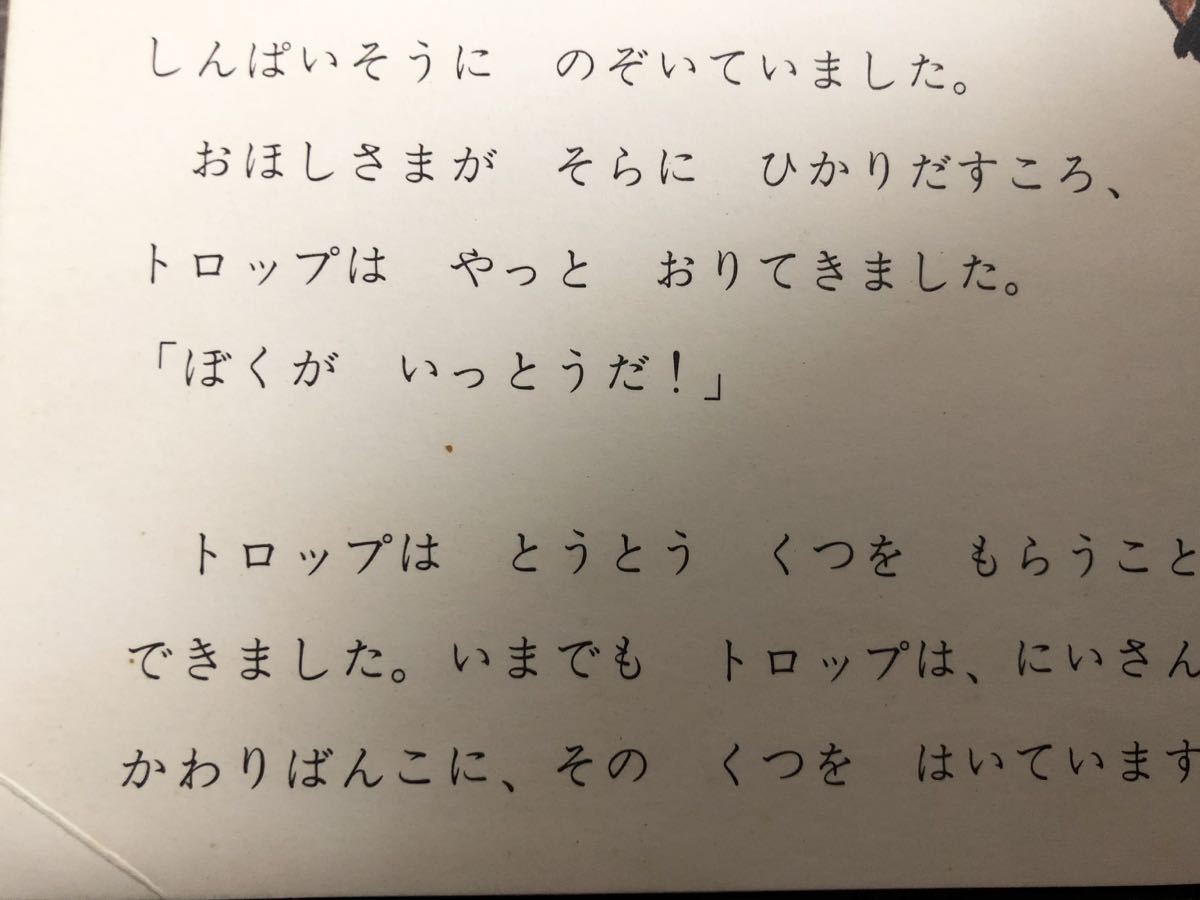 しんぱいそうに　のぞいていました。
おほしさまが　そらに　ひかりだすころ、
トロップは　やっと　おりてきました。
「ぼくが　いっとうだ！」
トロップは　とうとう　くつを　もらうこと
できました。いまでも　トロップは、にいさん
かわりばんこに、その　くつを　はいています